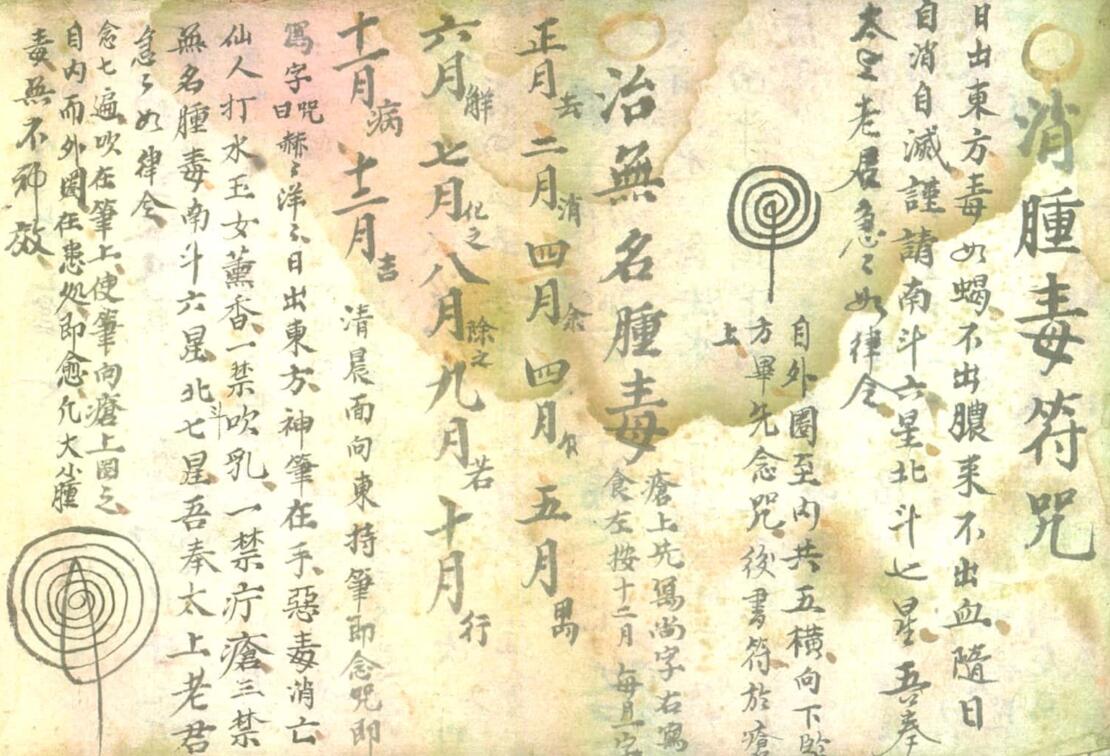 消腫毒符咒
日出東方毒如蝎不出膿来不出血隨日
自消自滅謹請南斗六星北斗七星吾奉
太上老君急〻如律令
自外圈至内共五横向下
方畢先念咒後書符於瘡
上
治無名腫毒
瘡上先寫尚字右寫
食左按十二月每月一字
正月去二月消四月余四月食五月
六月解七月化之八月除之九月若十月行
十一月病十二月吉
清晨面向東持筆即念咒即
寫字咒曰赫〻洋〻日出東方神筆在手惡毒消亡
仙人打水玉女薰香一禁吹乳一禁疔瘡三禁
無名腫毒南斗六星北斗七星吾奉太上老君
急〻如律令
念七遍吹在筆上使筆向瘡上圈之
自内而外圈在患処即愈凡大小腫
毒無不神效